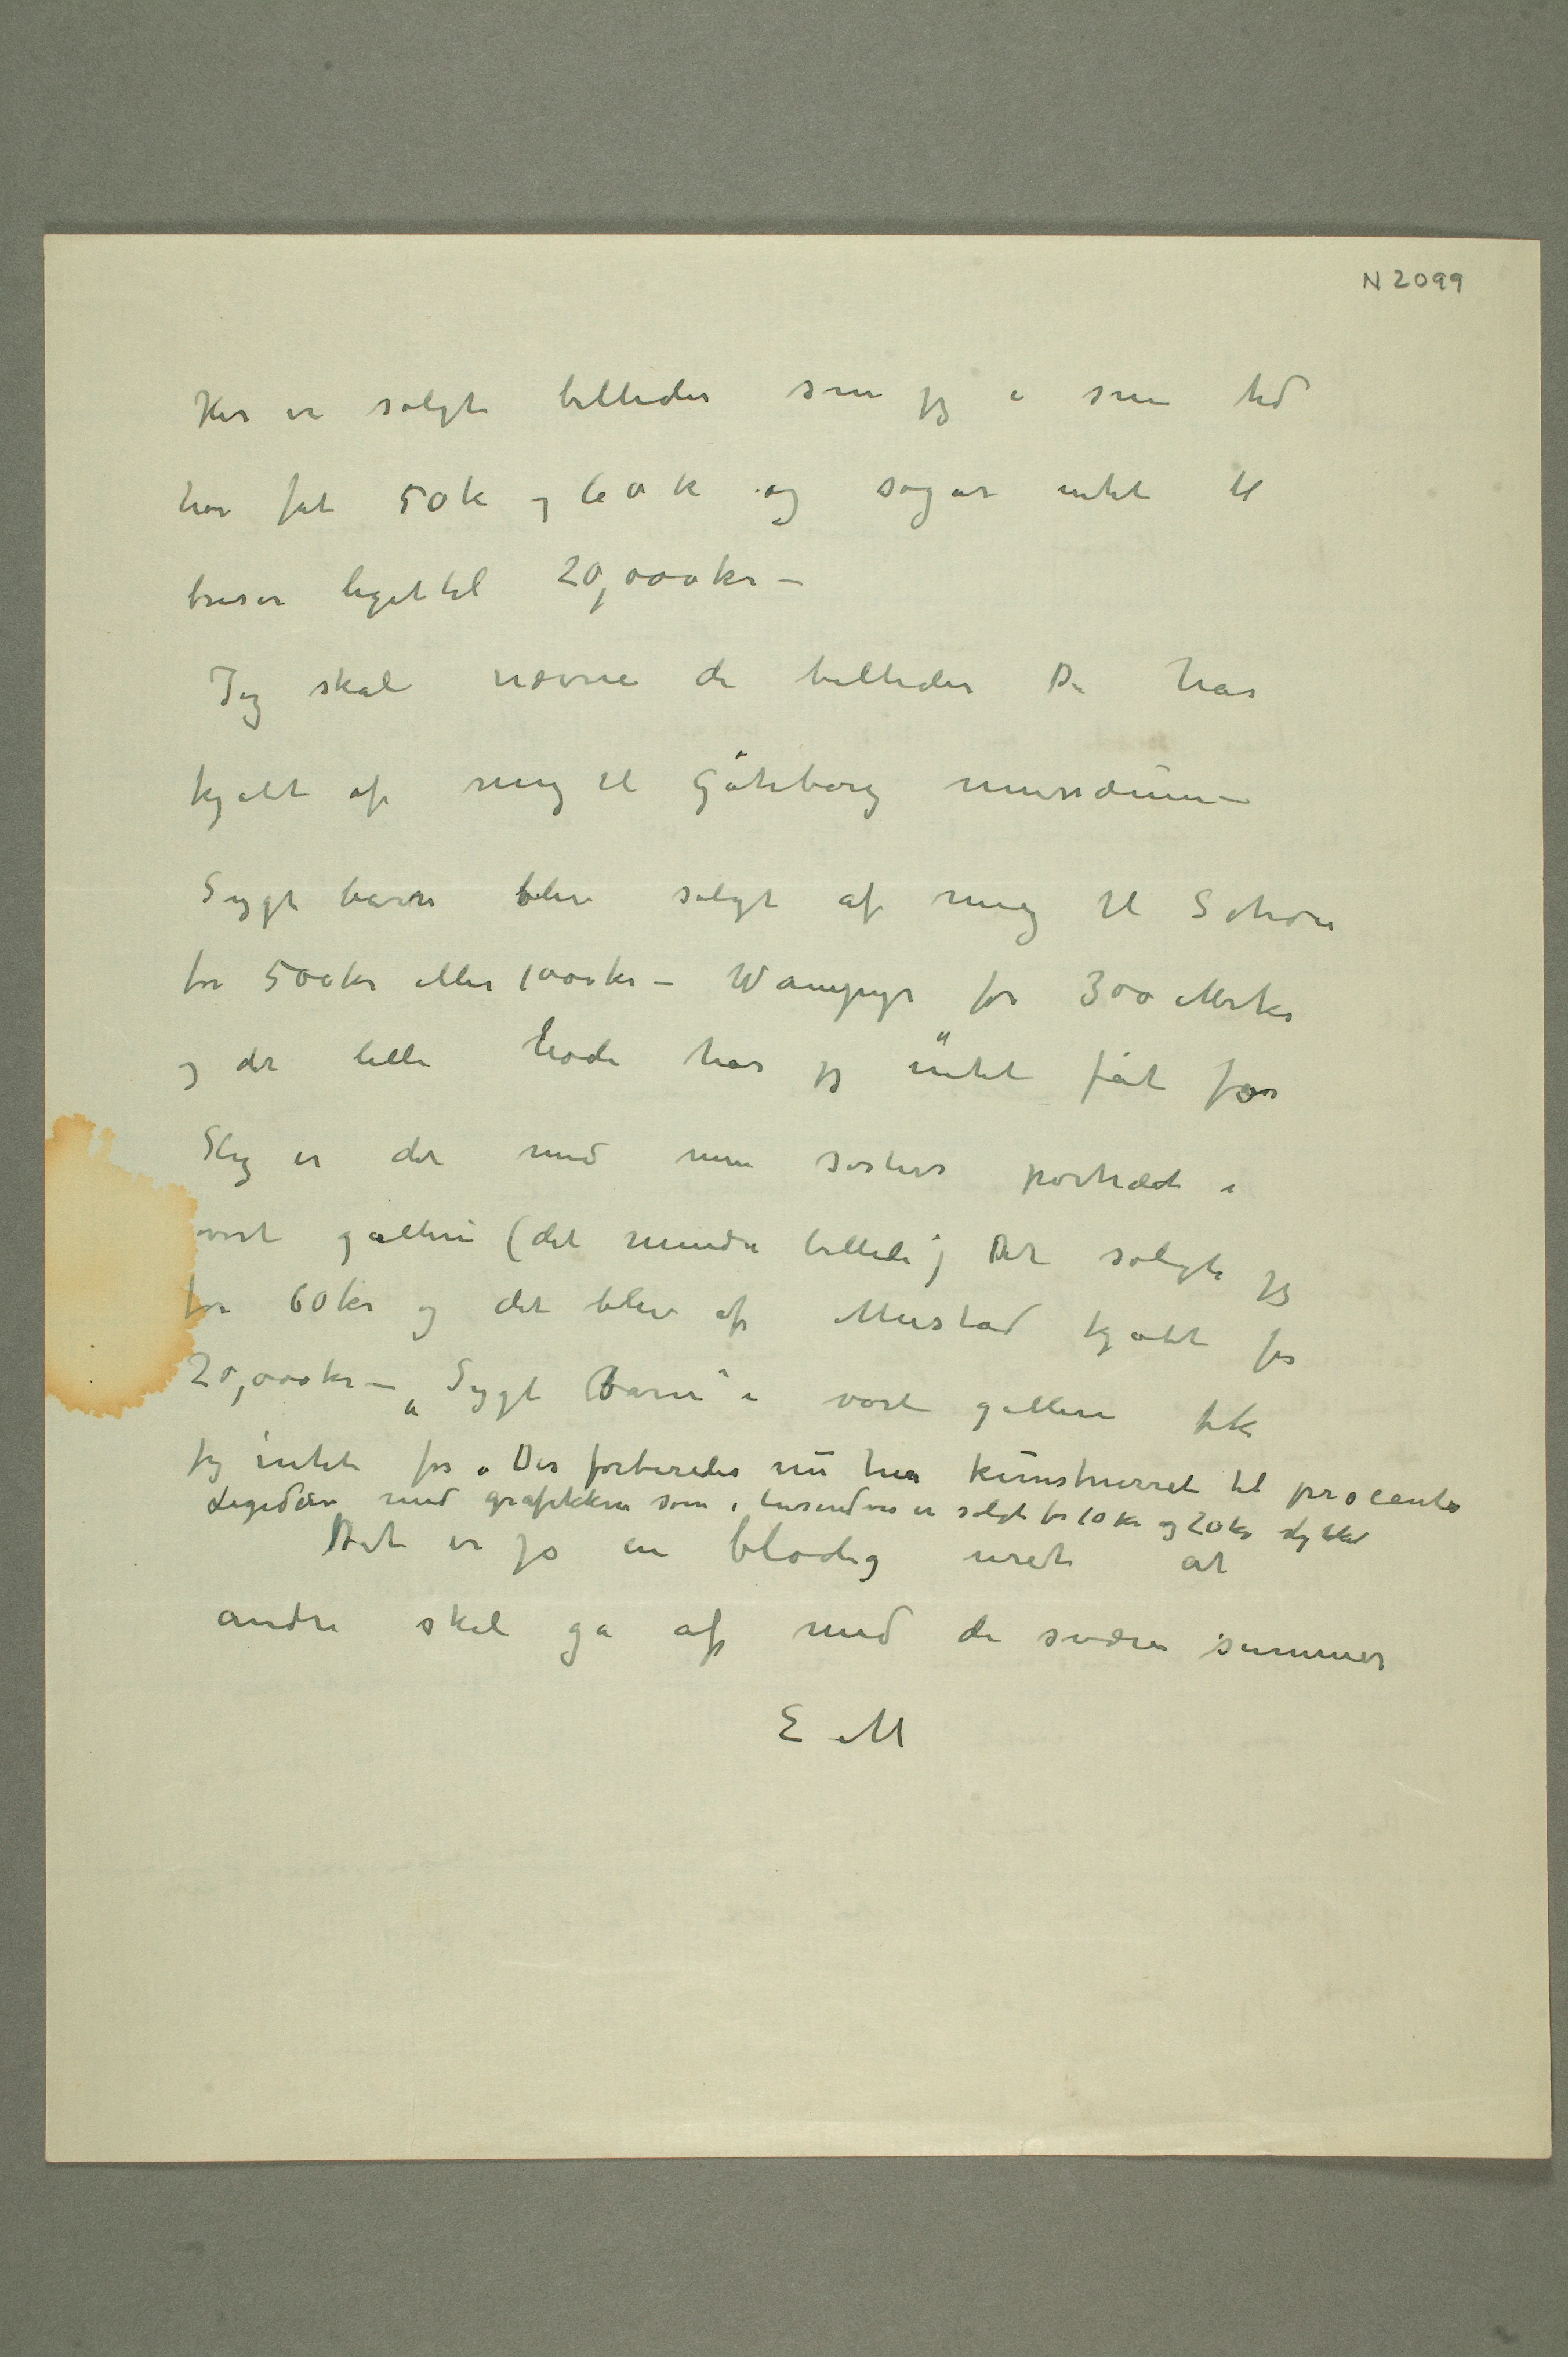 N 2099
Her er solgt billeder som jeg i sin tid
har fåt 50 k og 60 k og sogar intet til
priser liget til 20,000 kr –
Jeg skal nævne de billeder De har
kjøbt af mig til Göteborg mussæum –
Sygt barn blev solgt af mig til Schou
for 500 kr eller 1000 kr – Wampyr for 300 Mrk
og det lille hode har jeg intet fåt for
Slig er det med min søsters portræt i
vort galleri (det mindre billede) Det solgte jeg
for 60 kr og det blev af Mustad kjøbt for
20,000 kr – „Sygt Barn" i vort galleri fik
jeg intet for. Der forberedes nu her kunstnerret til procenter
Ligedan med grafikken som i tusindvis er solgt for 10 kr og 20 kr stykket
Det er jo en blodig uret at
andre skal gå af med de svære summer
E M